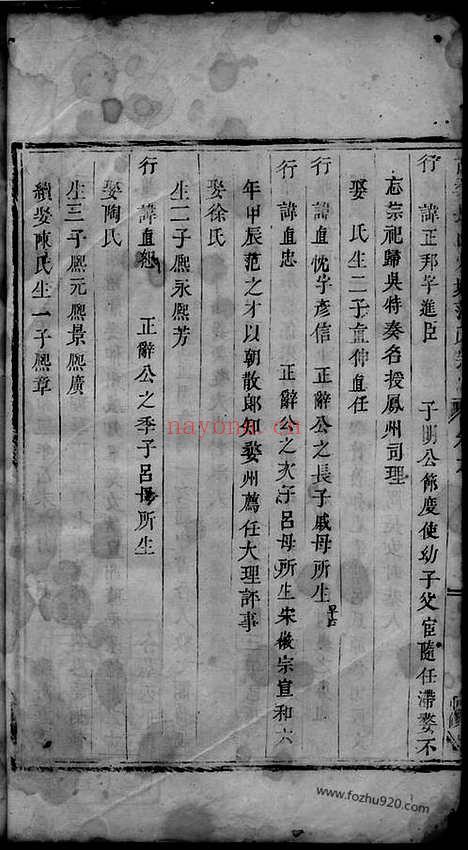 行　諱正邦字進臣　子明公節度使幼子父宦隨任滯婺不
忘宗祀歸吳特奏名授鳳州司理
娶　氏生二子直伸直任
行　諱直忱字彥信　正辭公之長子戚母所生
行　諱直忠　正辭公之次子呂母所生宋徽宗宣和六
年甲辰范之才以朝散郎知婺州薦任大理評事
娶徐氏
生二子熙永熙芳
行　諱直恕　正辭公之季子呂母所生
娶陶氏
生三子熙元熙景熙廣
續娶陳氏生一子熙章
nayona.cn
www.fozhu920.com